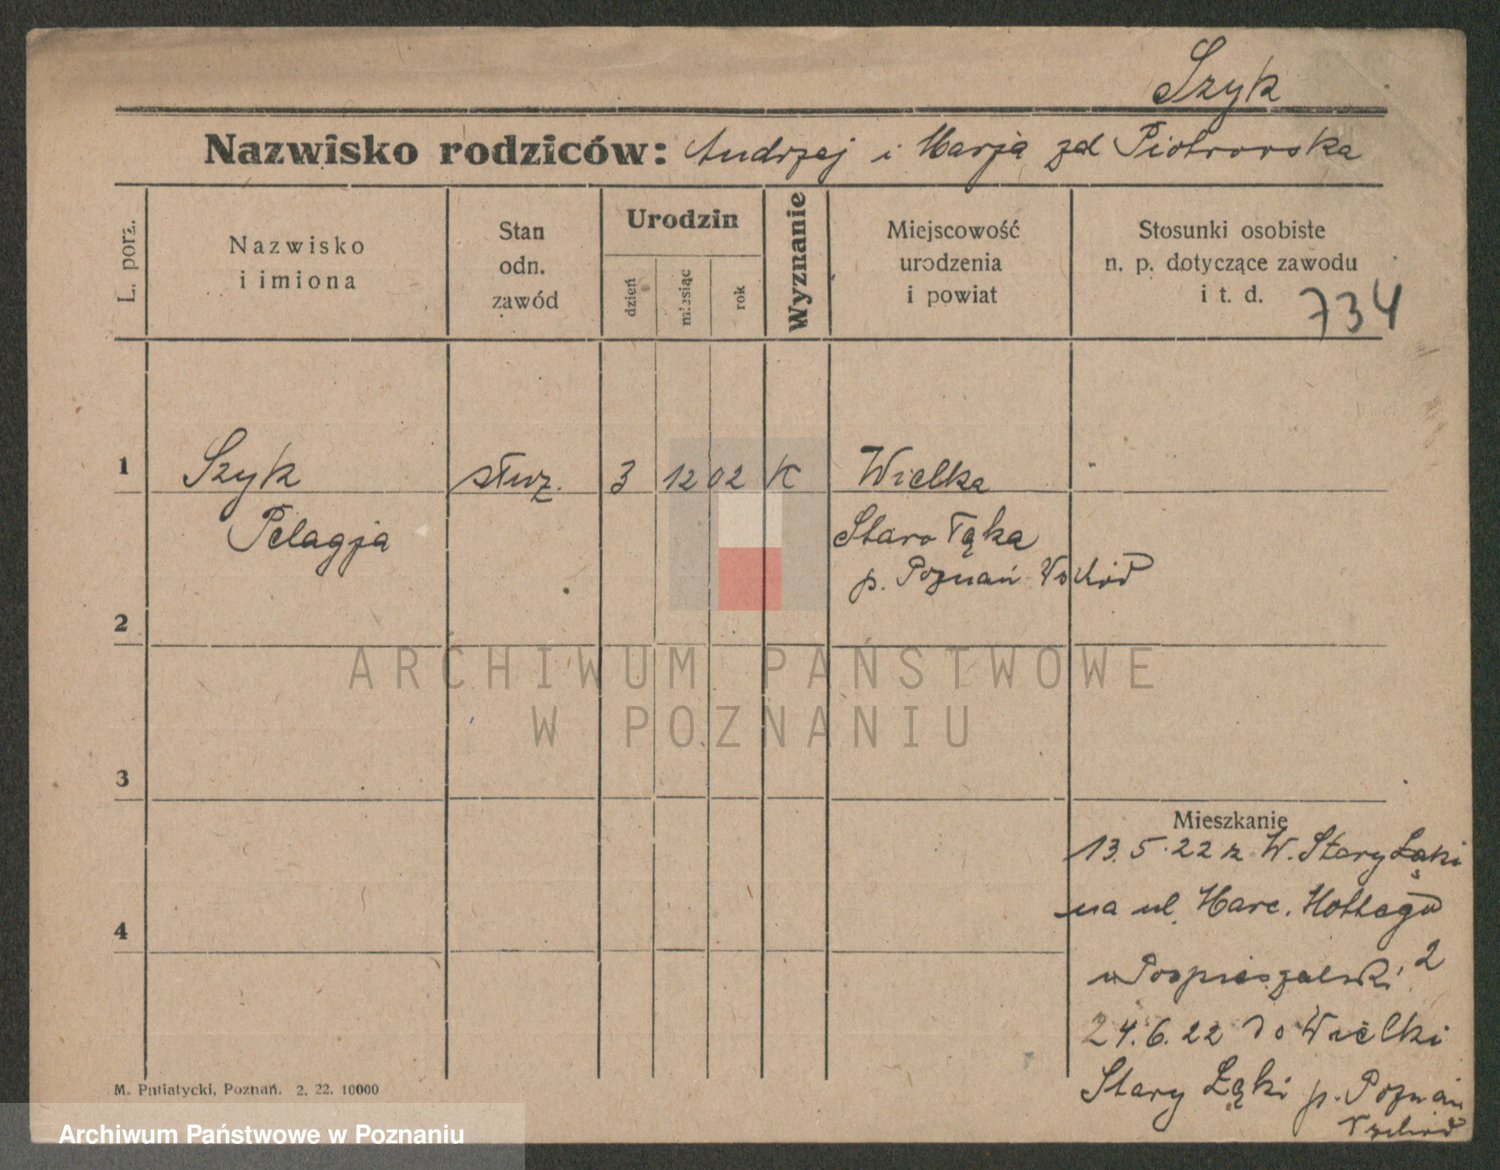 Szyk
Nazwisko rodziców: Andrzej i Marja zd Piotrowska
L. porz.
Nazwisko
i imiona
Stan
odn.
zawód
Urodzin
dzień
miesiąc
rok
Wyznanie
Miejscowość
urodzenia
i powiat
Stosunki osobiste
n. p. dotyczące zawodu
i t. d.
734
1 Szyk służ. 3 12 02 K Wielka
Pelagja Staro Łąka
p. Poznań Wschód
2
ARCHIWUM PAŃSTWOWE
W POZNANIU
3
Mieszkanie
13.5.22 z W. Stary Łąki
4
na ul. Marc. Mottego
u Pospieszalski 2
24.6.22 do Wielki
Stary Łąki p. Poznań
Wschód
M. Putiatycki, Poznań. 2. 22. 10000
Archiwum Państwowe w Poznaniu